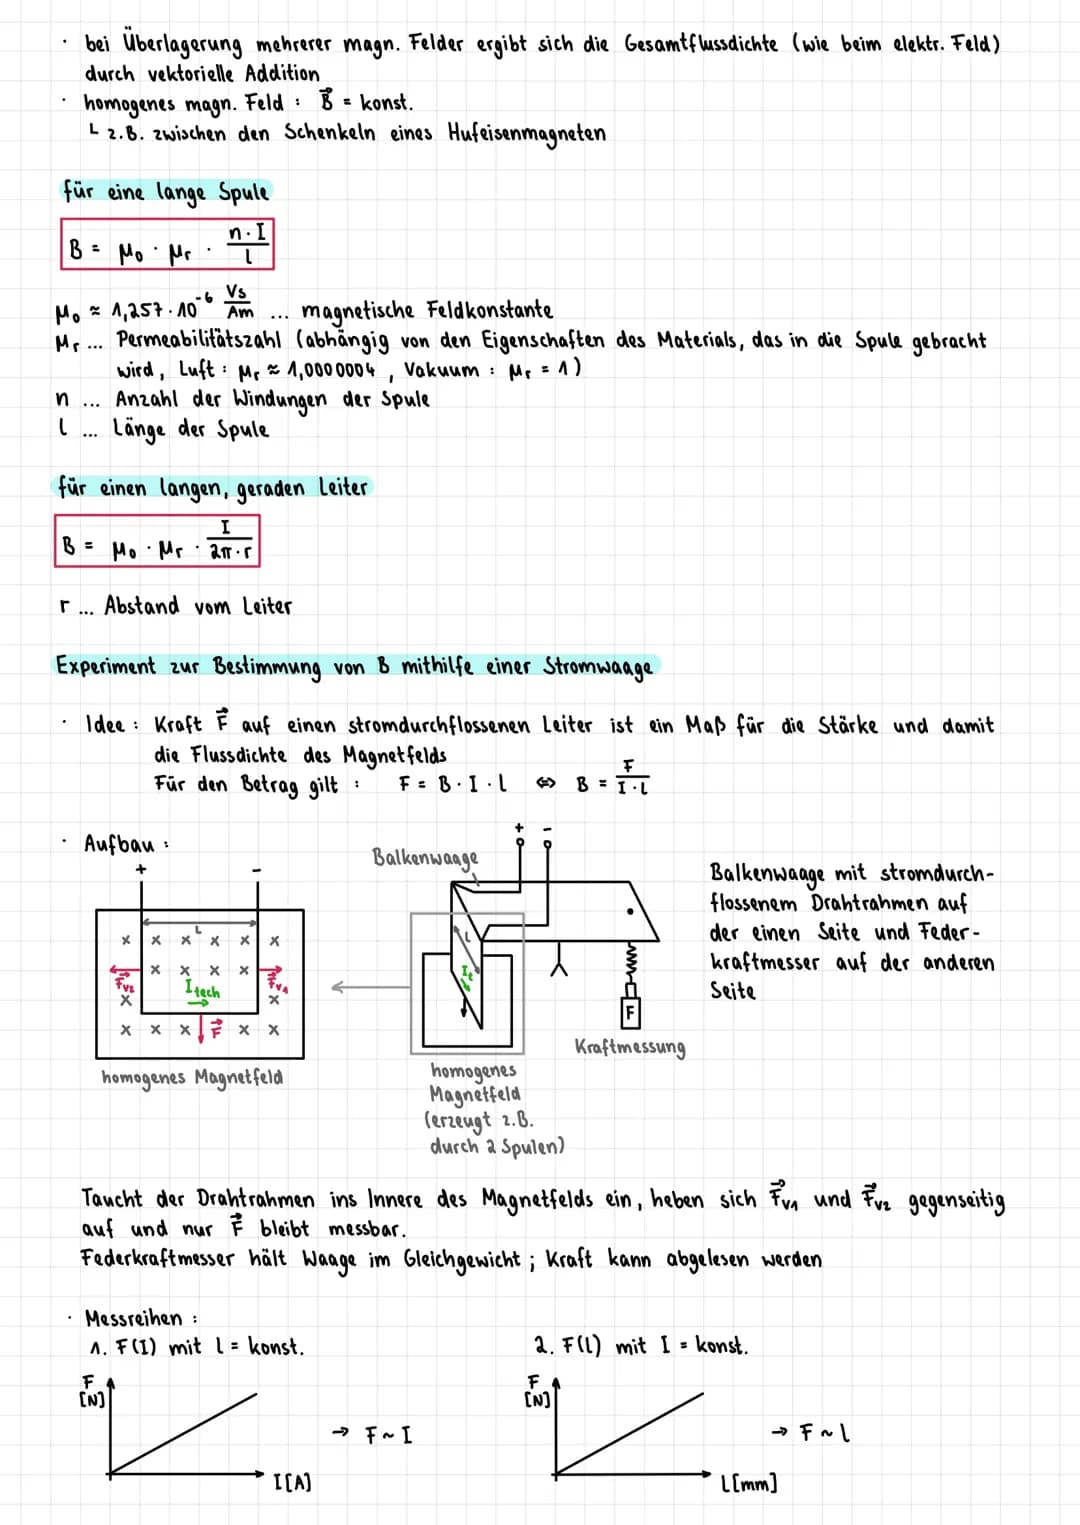 · bei Überlagerung mehrerer magn. Felder ergibt sich die Gesamtflussdichte (wie beim elektr. Feld)
durch vektorielle Addition
· homogenes magn. Feld : B⃗ = konst.
└ z.B. zwischen den Schenkeln eines Hufeisenmagneten
für eine lange Spule
B = μ₀ · μr · n·I / l
μ₀ ≈ 1,257·10⁻⁶ Vs/Am ... magnetische Feldkonstante
μr ... Permeabilitätszahl (abhängig von den Eigenschaften des Materials, das in die Spule gebracht
wird, Luft : μr ≈ 1,0000004 , Vakuum : μr = 1)
n ... Anzahl der Windungen der Spule
l ... Länge der Spule
für einen langen, geraden Leiter
B = μ₀ · μr · I / 2π·r
r ... Abstand vom Leiter
Experiment zur Bestimmung von B mithilfe einer Stromwaage
· Idee : Kraft F⃗ auf einen stromdurchflossenen Leiter ist ein Maß für die Stärke und damit
die Flussdichte des Magnetfelds
Für den Betrag gilt : F = B·I·l ⇔ B = F / I·l
· Aufbau :
+ -
L
x x x x x x
x x x x
F⃗v2 Itech F⃗v1
x x
x x x F⃗ x x
homogenes Magnetfeld
Balkenwaage
+ -
L
It
F
Kraftmessung
homogenes
Magnetfeld
(erzeugt z.B.
durch 2 Spulen)
Balkenwaage mit stromdurch-
flossenem Drahtrahmen auf
der einen Seite und Feder-
kraftmesser auf der anderen
Seite
Taucht der Drahtrahmen ins Innere des Magnetfelds ein, heben sich F⃗v1 und F⃗v2 gegenseitig
auf und nur F⃗ bleibt messbar.
Federkraftmesser hält Waage im Gleichgewicht ; Kraft kann abgelesen werden
· Messreihen :
1. F(I) mit l = konst.
F
[N]
I[A]
→ F ~ I
2. F(l) mit I = konst.
F
[N]
l[mm]
→ F ~ l